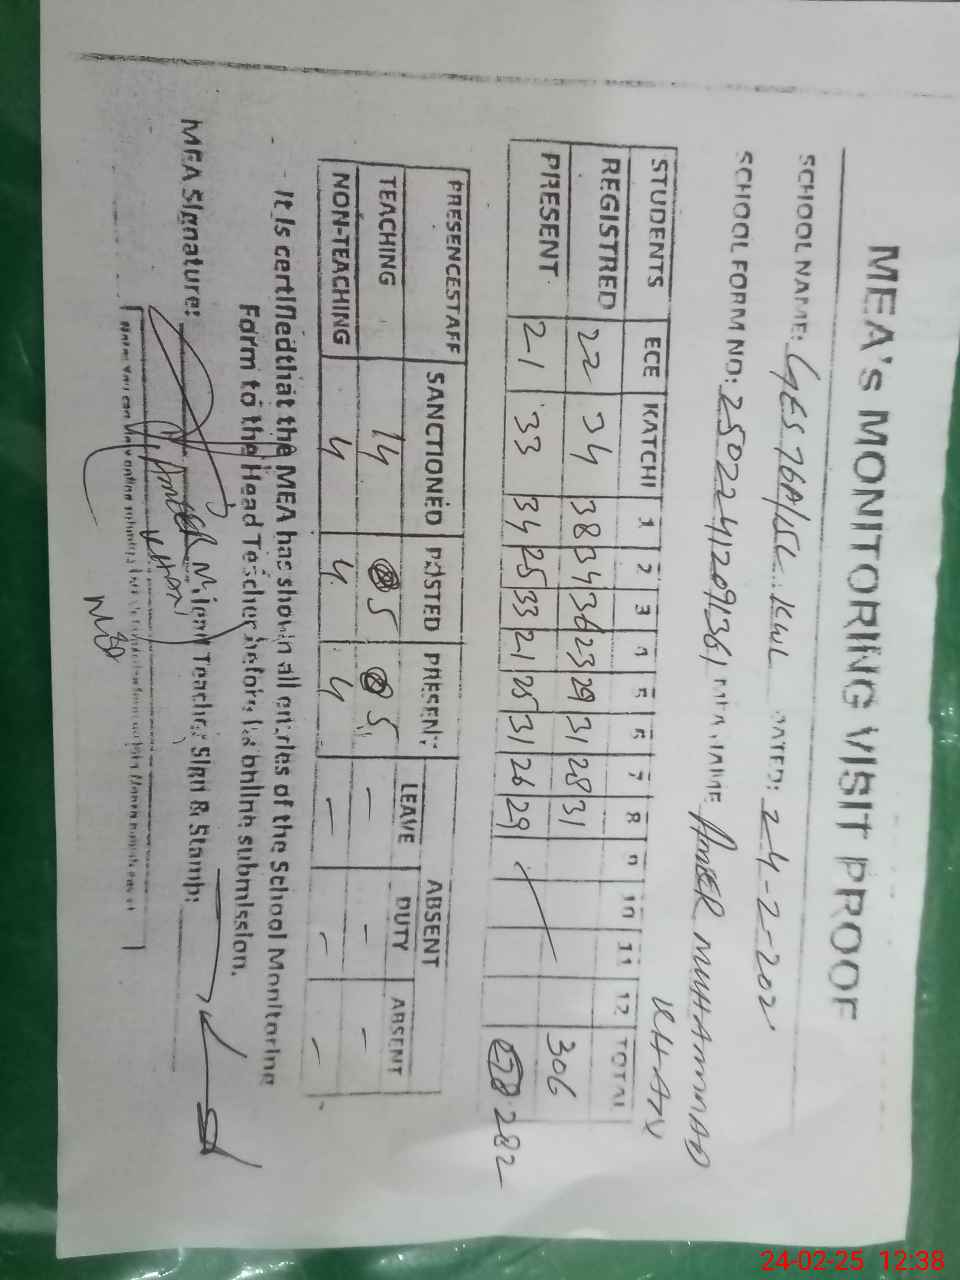 MEA's MONITORING VISIT PROOF
SCHOOL NAME: GES 76A/15L KWL DATED: 24-2-202
SCHOOL FORM NO: 25022412091361 MEA NAME AMEER MUHAMMAD KHAN
STUDENTS ECE KATCHI 1 2 3 4 5 6 7 8 9 10 11 12 TOTAL
REGISTRED 22 34 38 34 36 23 29 31 28 31 306
PRESENT 21 33 34 25 33 21 25 31 26 29 282
PRESENCESTAFF SANCTIONED POSTED PRESENT ABSENT
LEAVE DUTY ABSENT
TEACHING 14 5 5 - - -
NON-TEACHING 4 4 4 - - -
It is certifiedthat the MEA has shown all entries of the School Monitoring
Form to the Head Teacher before its online submission.
MEA Signature: Head Teacher Sign & Stamp:
AMEER
KHAN
24-02-25 12:38